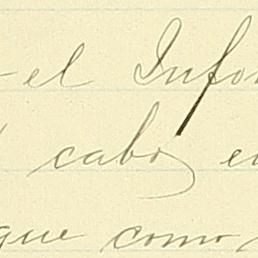 el Info
cabo, en
que como